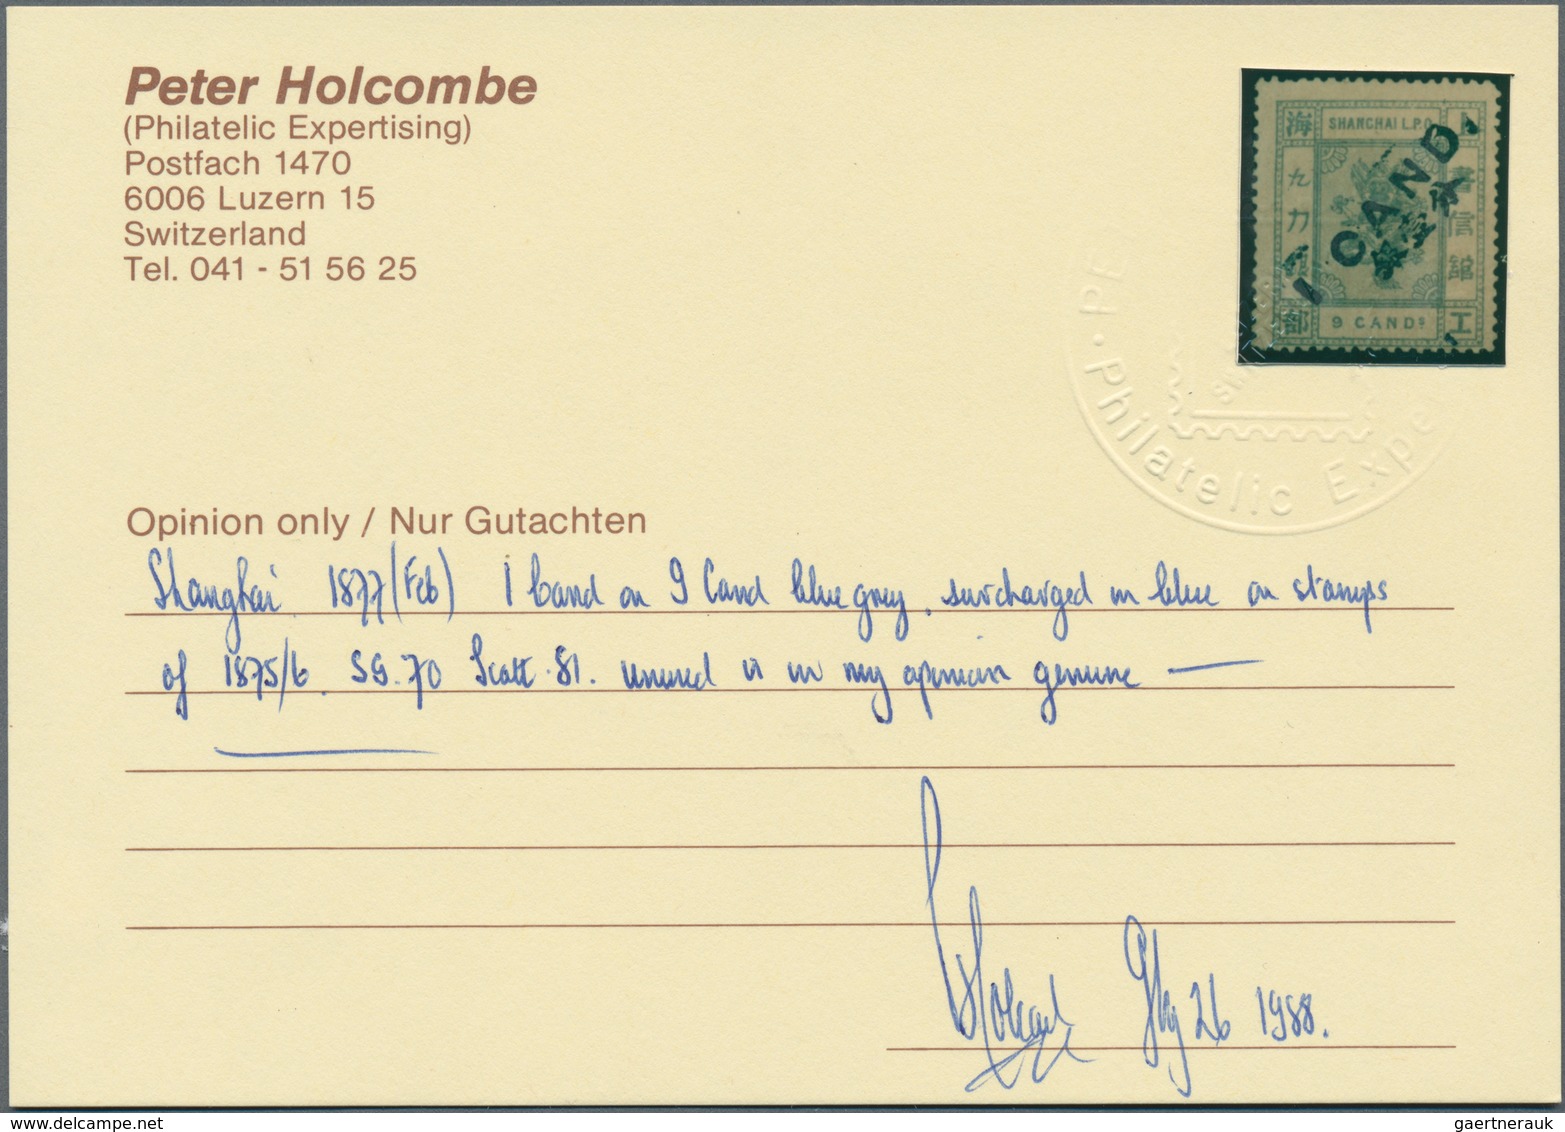 Peter Holcombe
(Philatelic Expertising)
Postfach 1470
6006 Luzern 15
Switzerland
Tel. 041 - 51 56 25
海 SHANGHAI L.P.O.
1 CAND.
書信館
九
部 9 CANDS 工
PE
Philatelic Expe
Opinion only / Nur Gutachten
Shanghai 1877 (Feb) 1 Cand on 9 Cand blue grey, surcharged in blue on stamps
of 1875/6. SG. 70 Scott. 81. unused is in my opinion genuine —
26 1988.
gaertnerauk / DELCAMPE.net